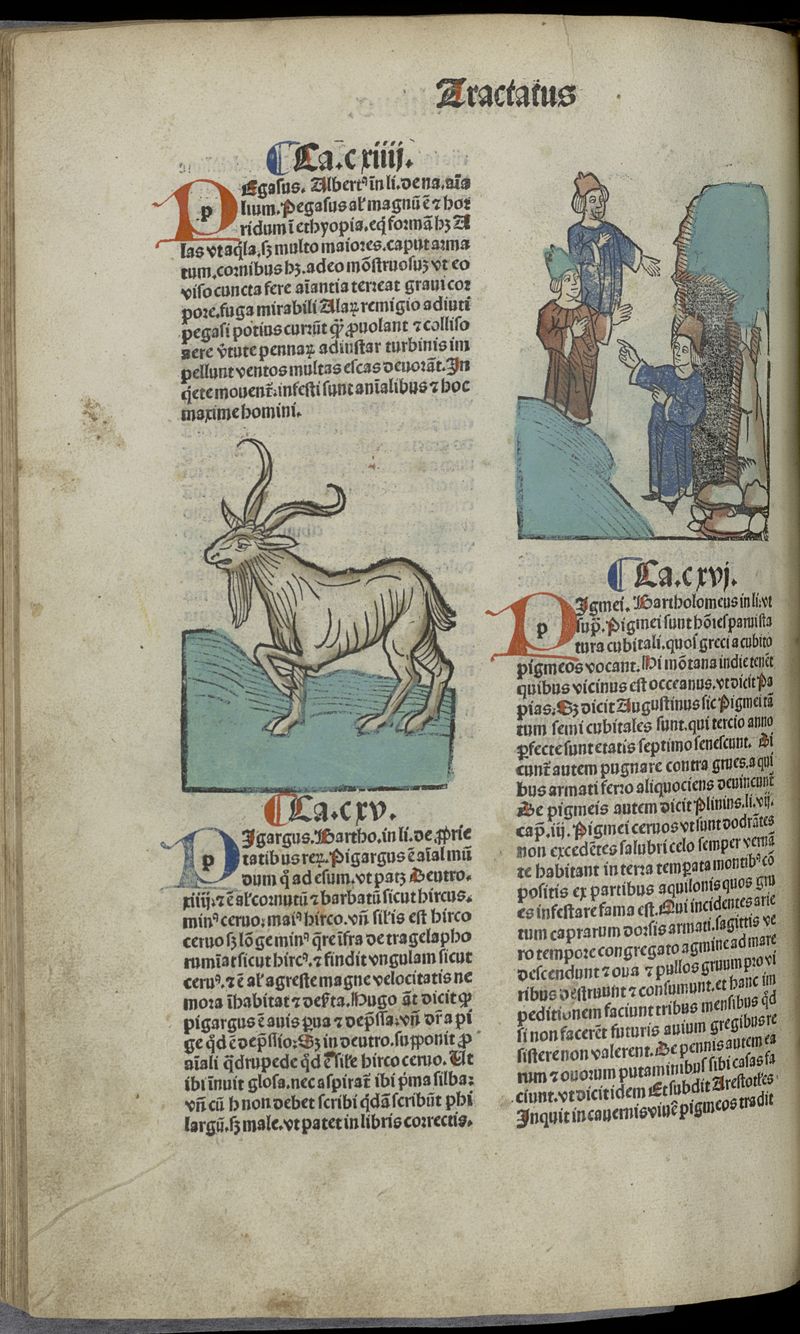 Tractatus
Ca.cxiiij.
PEgasus. Albertꝰ in li. de na. aĩa
lium. Pegasus aĺ magnũ ẽ ⁊ hor
ridum ĩ ethyopia. eq̃ formã hꝫ A
las vt aq̃la, sꝫ multo maiores. caput arma
tum. cornibus hꝫ. adeo mõstruosuꝫ vt eo
viso cuncta fere aĩantia terreat graui cor
pore, fuga mirabili Alaꝝ remigio adiuti
pegasi potius currũt q̃ꝫ ꝓuolant ⁊ colliso
aere v̾tute pennaꝝ ad instar turbinis im
pellunt ventos multas escas deuorãt. In
q̃ete mouent̃. infesti sunt anĩalibus ⁊ hoc
maxime homini.
Ca.cxv.
PIgargus. Bartho. in li. de ꝓprie
tatibus reꝝ. Pigargus ẽ aĩal mũ
dum q̃ ad esum. vt patꝫ Deutro.
xiiij. ⁊ ẽ aĺ cornutũ ⁊ barbatũ sicut hircus.
minꝰ ceruo; maiꝰ hirco. vñ siĺis est hirco
ceruo sꝫ lõge minꝰ q̃re ĩfra de tragelapho
rumĩat sicut hircꝰ. ⁊ findit vngulam sicut
ceruꝰ. ⁊ ẽ aĺ agreste magne velocitatis ne
mora ĩhabitat ⁊ deẽta. Hugo aũt dicit ꝙ
pigargus ẽ auis ꝑua ⁊ dep̃ssa. vñ dr̃ a pi
ge qd̃ ẽ dep̃ssio; Sꝫ in deutro. supponit ꝓ
aĩali q̃drupede qd̃ ẽ siĺe hirco ceruo. Ut
ibi ĩnuit glosa. nec aspirat̃ ibi p̃ma silba:
vñ cũ h non debet scribi qd̃ã scribũt phi
largũ. sꝫ male. vt patet in libris correctis.
Ca.cxvj.
PIgmei. Bartholomeus in li. vt
sup̃. Pigmei sunt hõĩes parui sta
tura cubitali. quos greci a cubito
pigmeos vocant. Hi mõtana indie tenẽt
quibus vicinus est occeanus. vt dicit Pa
pias. Sꝫ dicit Augustinus sic Pigmei tã
tum semi cubitales sunt. qui tercio anno
ꝑfecte sunt etatis septimo senescunt. Di
cunt̃ autem pugnare contra grues. a qui
bus armati ferro aliquociens deuincunt̃
De pigmeis autem dicit Plinius. li. vij.
cap̃. iij. Pigmei ceruos vt sunt dodrãtes
non excedẽtes salubri celo semper vernã
te habitant in terra temperata montibꝰ cõ
positis ex partibus aquilonis quos gru
es infestare fama est. Qui incidentes arie
tum caprarum dorsis armati. sagittis ve
ro tempore congregato agmine ad mare
descendunt ⁊ oua ⁊ pullos gruum pro vi
ribus destruunt ⁊ consumunt. et hanc im
peditionem faciunt tribus mensibus qd̃
si non facerẽt futuris auium gregibus re
sistere non valerent. De pennis autem ea
rum ⁊ ouorum putaminibus sibi casas fa
ciunt. vt dicit idem Et subdit Arestotĺes
Inquit in cauernis viuẽ pigmeos tradit